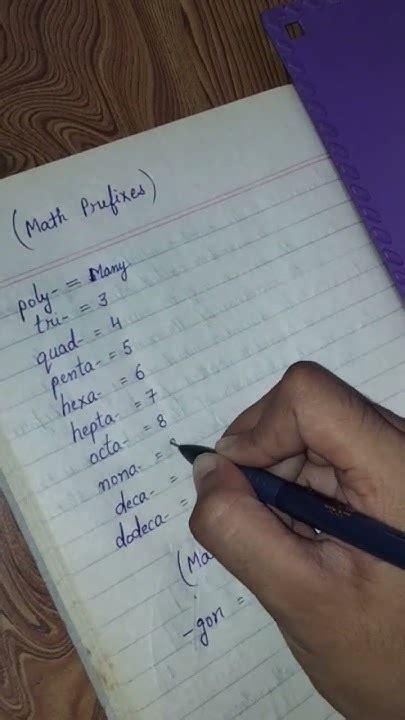 (Math Prefixes)
poly- = Many
tri- = 3
quad- = 4
penta- = 5
hexa- = 6
hepta- = 7
octa- = 8
nona- =
deca- =
dodeca- =
(Ma
-gon =